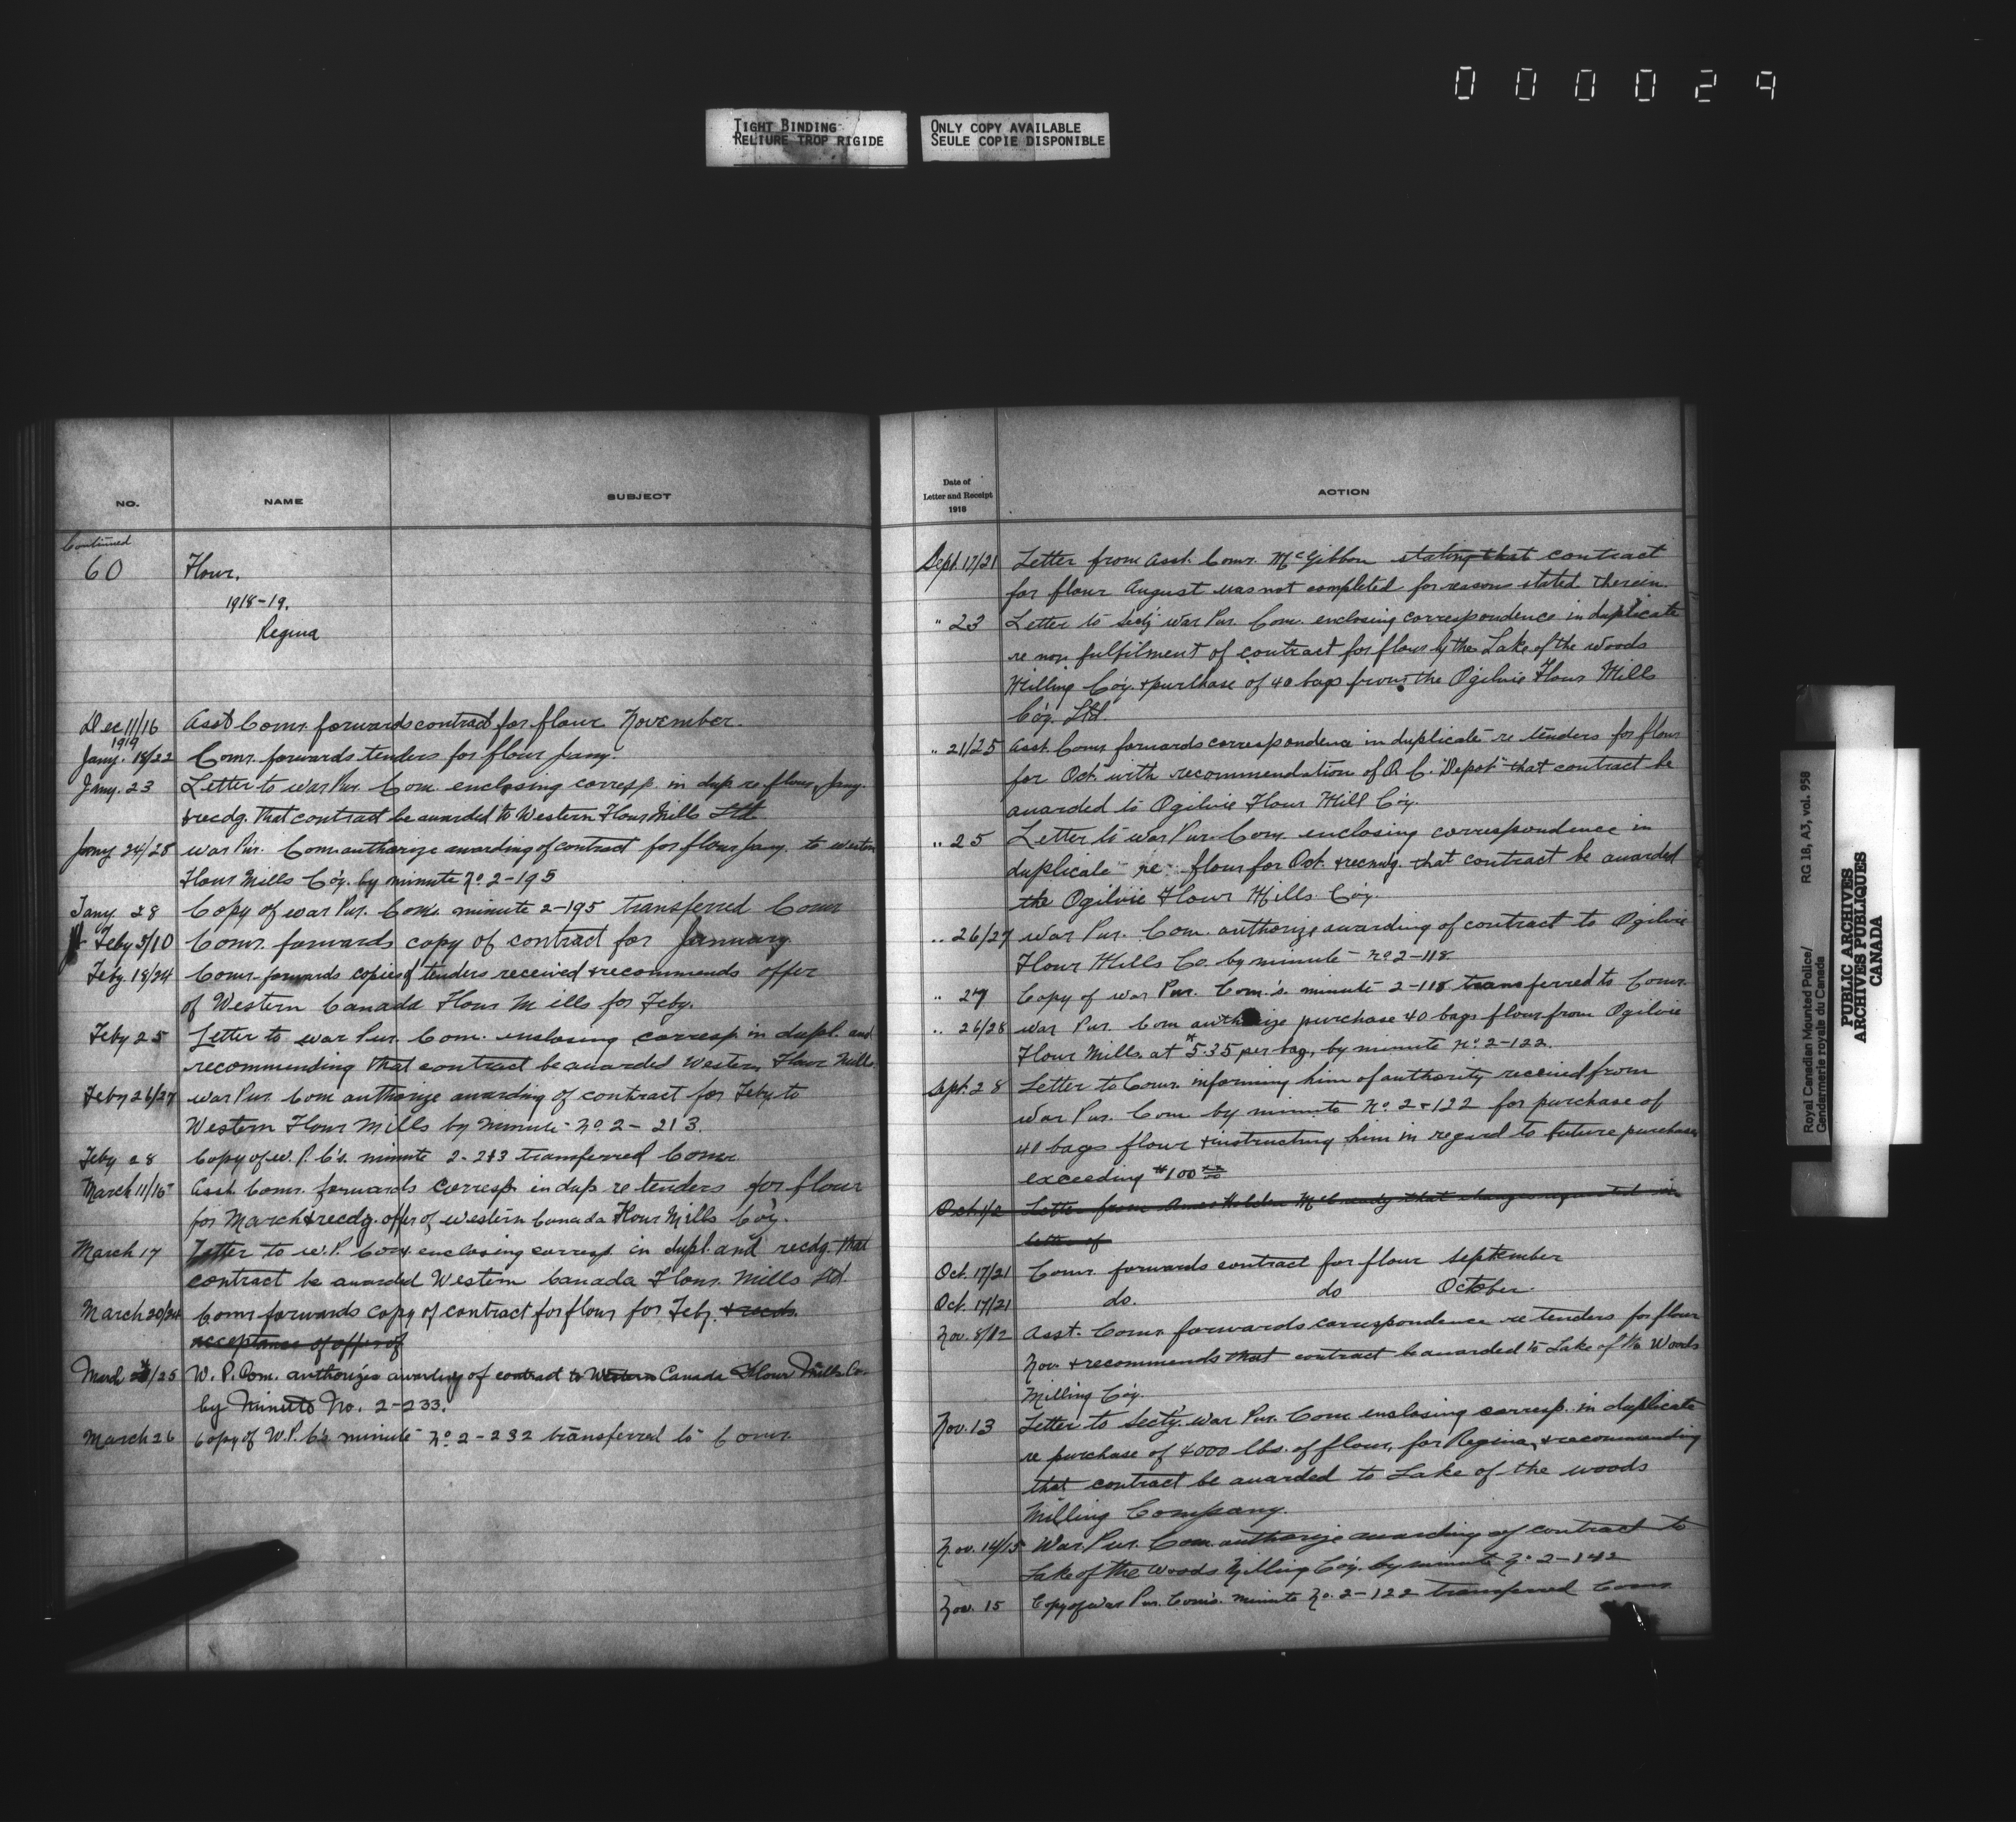 000029
TIGHT BINDING
RELIURE TROP RIGIDE
ONLY COPY AVAILABLE
SEULE COPIE DISPONIBLE
NO.
NAME
SUBJECT
Continued
60
Flour.
1918-19.
Regina
Dec 11/16 Asst Comr. forwards contract for flour November.
1919
Jany. 18/22 Comr. forwards tenders for flour Jany.
Jany. 23 Letter to War Pur. Com. enclosing corresp. in dup re flour, Jany.
& recdg. that contract be awarded to Western Flour Mills Ltd
Jany 24/28 War Pur. Com authorize awarding of contract for flour Jany. to Western
Flour Mills Co'y. by minute No 2-195
Jany 28 Copy of War Pur. Com. minute 2-195 transferred Comr
Feby 5/10 Comr. forwards copy of contract for January.
Feby. 18/24 Comr. forwards copies of tenders received & recommends offer
of Western Canada Flour Mills for Feby.
Feby 25 Letter to War Pur. Com. enclosing corresp in dupl. and
recommending that contract be awarded Western Flour Mills
Feby 26/27 War Pur. Com authorize awarding of contract for Feby to
Western Flour Mills by Minute No 2-213.
Feby 28 Copy of W. P. C's. minute 2-213 transferred Comr.
March 11/15 Asst. Comr. forwards corresp. in dup re tenders for flour
for March & recdg. offer of Western Canada Flour Mills Co'y.
March 17 Letter to W.P. Com enclosing corresp. in dupl. and recdg. that
contract be awarded Western Canada Flour Mills Ltd.
March 20/24 Comr forwards copy of contract for flour for Feby. & recds.
acceptance of offer of
March /25 W. P. Com. authorizes awarding of contract to Western Canada Flour Mills Co.
by Minute No. 2-233.
March 26 Copy of W.P. C's minute No 2-232 transferred to Comr.
Date of
Letter and Receipt
1918
ACTION
Sept. 17/21 Letter from Asst. Comr. McGibbon stating that contract
for flour August was not completed for reasons stated therein.
" 23 Letter to Sec'y War Pur. Com. enclosing correspondence in duplicate
re non fulfilment of contract for flour by the Lake of the Woods
Milling Co'y. & purchase of 40 bags from the Ogilvie Flour Mills
Co'y. Ltd.
" 21/25 Asst. Comr forwards correspondence in duplicate re tenders for flour
for Oct. with recommendation of O. C. "Depot" that contract be
awarded to Ogilvie Flour Mill Co'y.
" 25 Letter to War Pur. Com. enclosing correspondence in
duplicate re flour for Oct. & recmdg. that contract be awarded
the Ogilvie Flour Mills Co'y.
" 26/27 War Pur. Com. authorize awarding of contract to Ogilvie
Flour Mills Co. by minute No 2-118
" 27 Copy of War Pur. Com.'s. minute 2-118 transferred to Comr.
" 26/28 War Pur. Com authorize purchase 40 bags flour from Ogilvie
Flour Mills at $5.35 per bag, by minute No. 2-122.
Sept. 28 Letter to Comr. informing him of authority received from
War Pur. Com by minute No. 2-122 for purchase of
40 bags flour & instructing him in regard to future purchases
exceeding $100 xx
Oct. 1/2 Letter from Ames Holden McCready that changes requested in
letter of
Oct. 17/21 Comr. forwards contract for flour September
Oct. 17/21 do. do October.
Nov. 8/12 Asst. Comr. forwards correspondence re tenders for flour
Nov. & recommends that contract be awarded to Lake of the Woods
Milling Co'y.
Nov. 13 Letter to Secty. War Pur. Com enclosing corresp. in duplicate
re purchase of 4000 lbs. of flour, for Regina, & recommending
that contract be awarded to Lake of the Woods
Milling Company.
Nov. 14/15 War. Pur. Com. authorize awarding of contract to
Lake of the Woods Milling Co'y. by minute No 2-142
Nov. 15 Copy of War Pur. Com's. minute No. 2-122 transferred Comr.
Royal Canadian Mounted Police/
Gendarmerie royale du Canada
RG 18, A3, vol. 958
PUBLIC ARCHIVES
ARCHIVES PUBLIQUES
CANADA